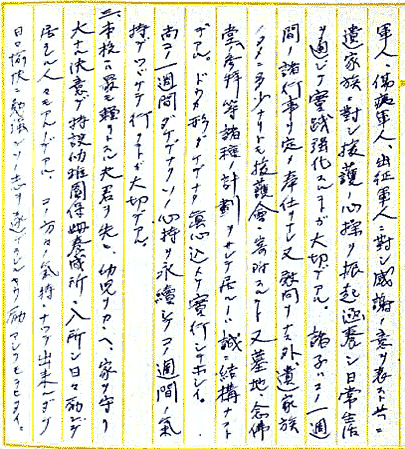 軍人、傷痍軍人、出征軍人ニ対シ感謝ノ意ヲ表スト共ニ
遺家族ニ対シ援護ノ心操ヲ振起涵養シ日常生活
ヲ通ジテ実践強化スルコトガ大切デアル。諸子ハコノ一週
間ノ諸行事ヲ定メ奉仕ヲナシ又慰問ヲナス外、遺家族
ノタメニ多少ナリトモ援護会ニ寄附スルトカ又墓地ノ念佛
堂参拝等諸種ノ計劃ヲサレテ居ルハ誠ニ結構ナコト
デアル。ドウカ形ダケデナク真心込メテ実行シテホシイ。
尚コノ一週間ダケデナクソノ心持ヲ永続シテコノ週間ノ気
持デツヅケテ行クコトガ大切デアル。
三、本校ニ最モ種々ナル夫君ヲ失ヒ幼児ヲカヽヘ、家ヲ守リ
大ナル決意デ特設幼稚園保姆養成所ニ入所シ日々励ンデ
居ラルル人々モアルノデアル。コノ方々ノ気持ニナツテ出来ルダケ
日々愉快ニ勉強シソノ志ヲ達セラレルヤウ励マシテモラヒタイ。